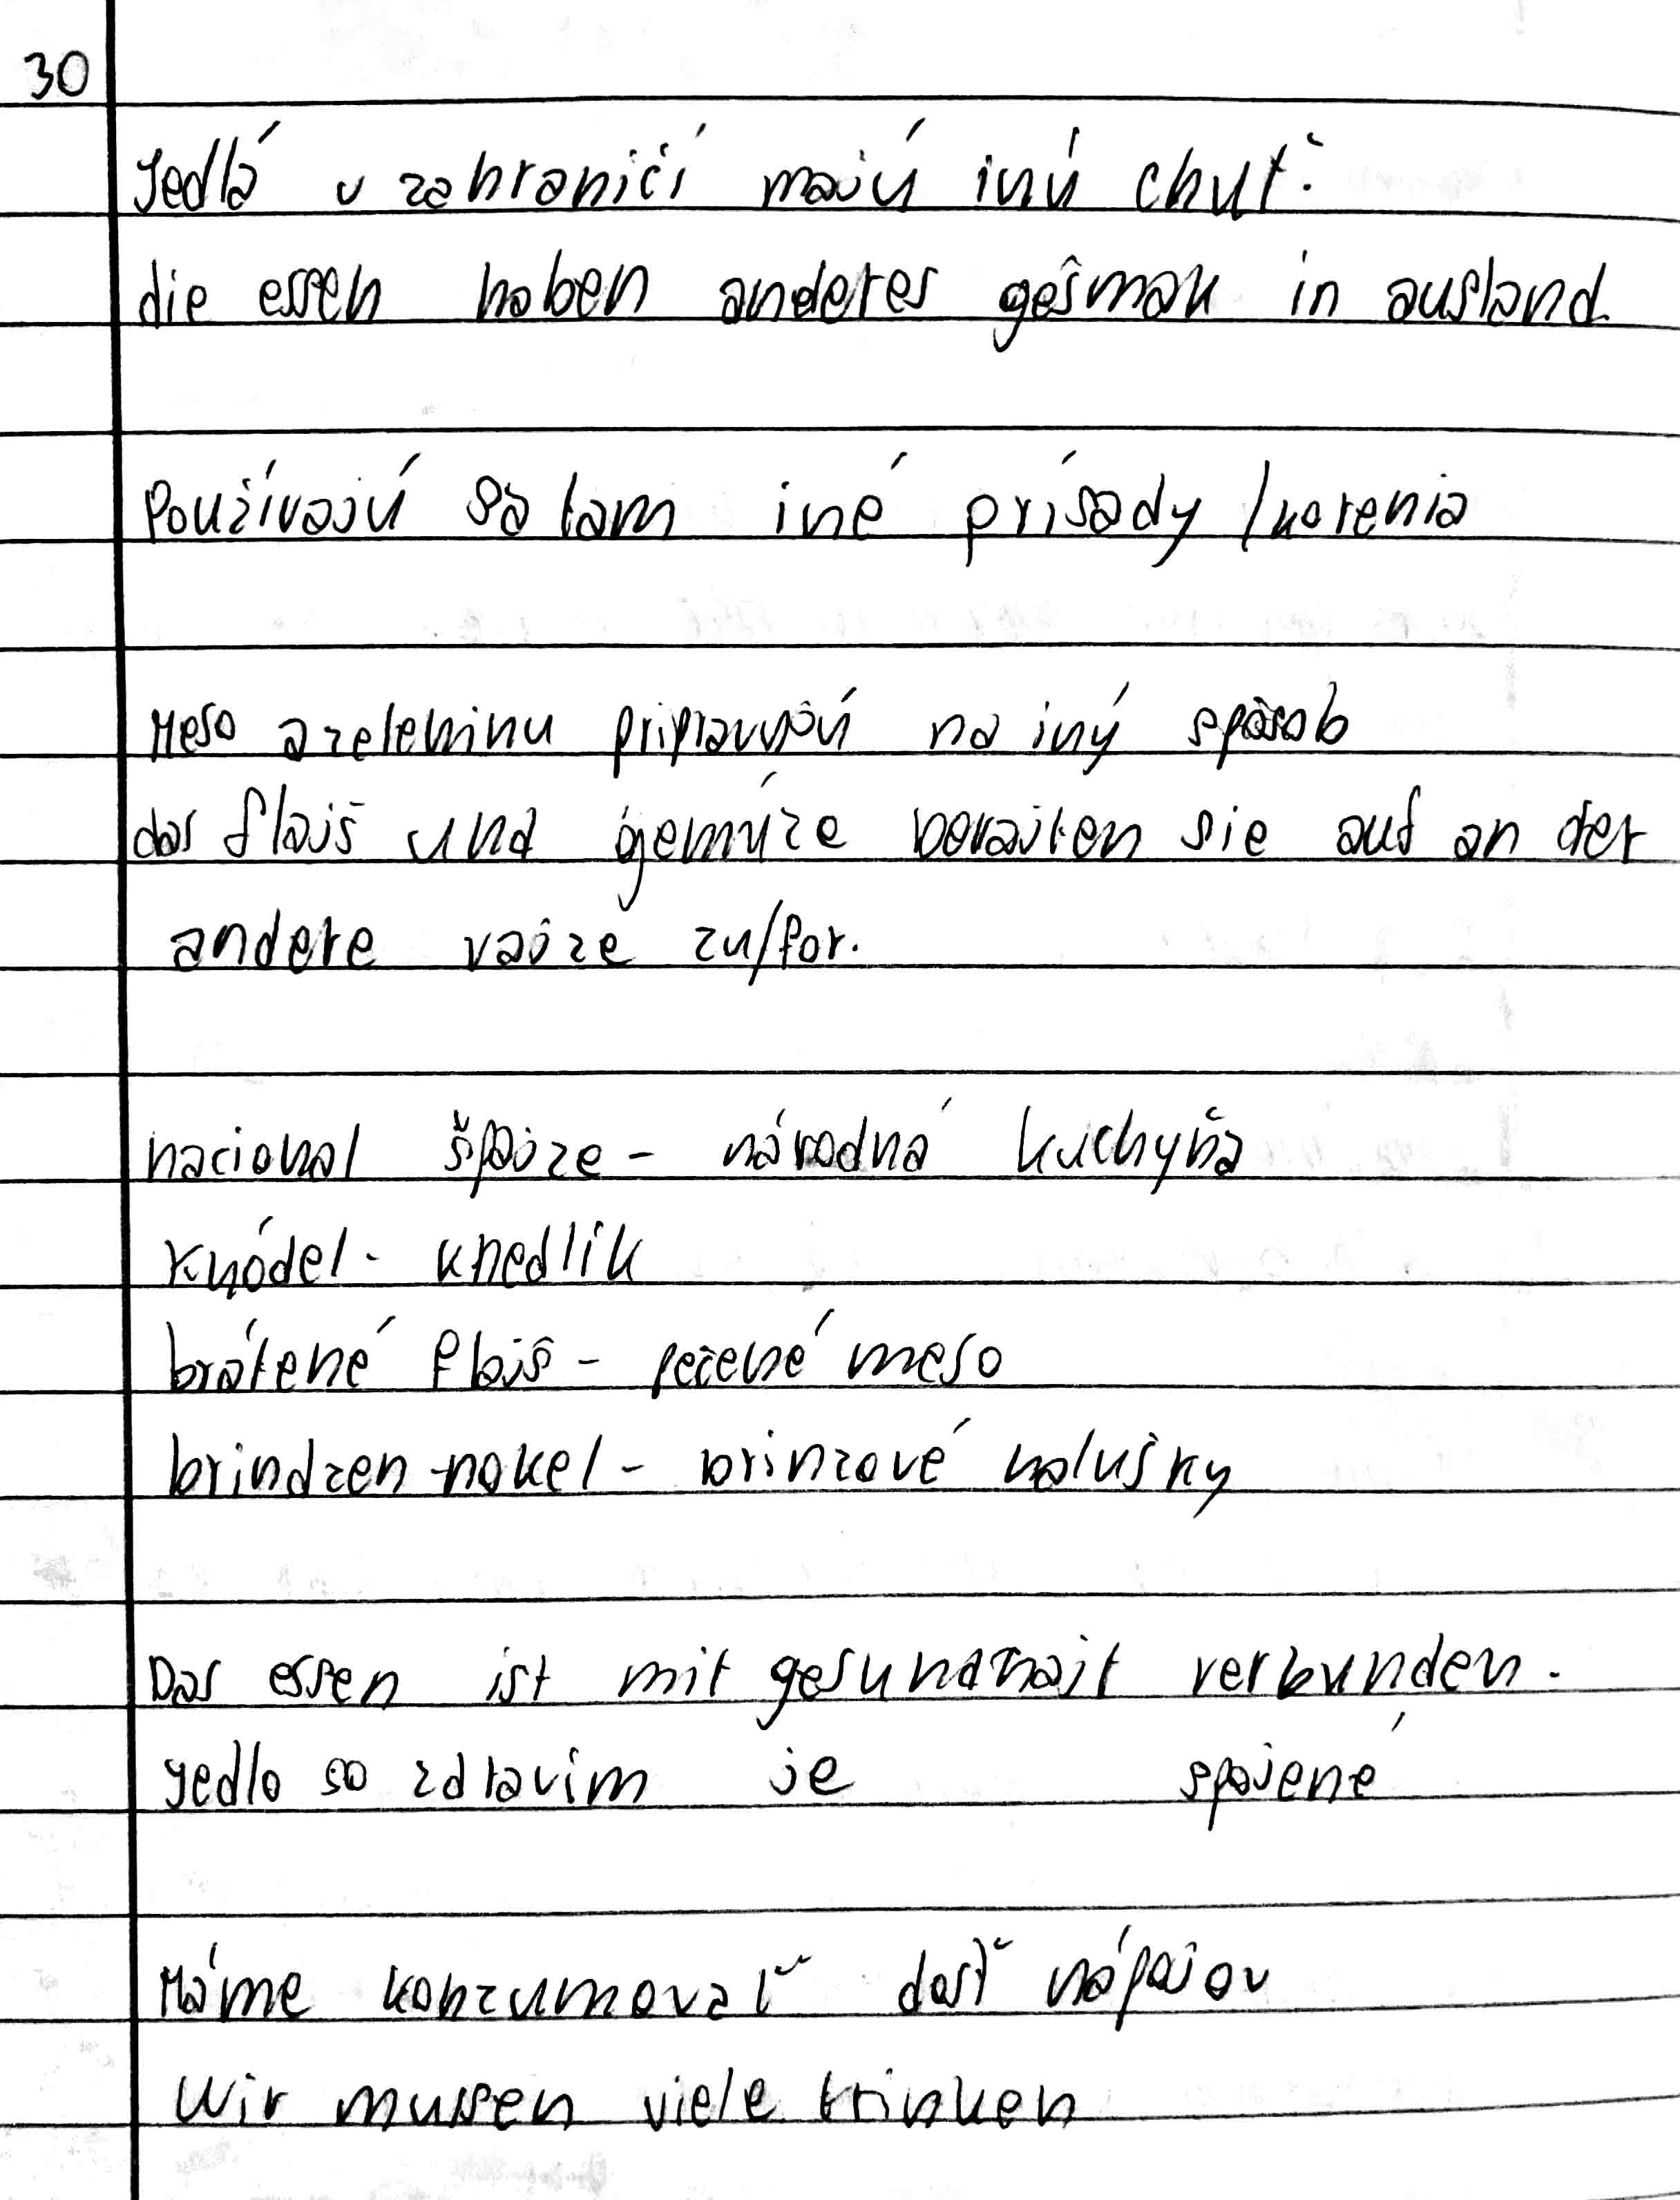 30
Jedlá v zahraničí majú inú chuť.
die essen haben anderes gešmak in ausland.
Používajú sa tam iné prísady /korenia
Meso a zeleninu pripravujú na iný spôsob
das flajš und gemúze berajten sie auf an der
andere vajze zu/for.
nacional špajze - národná kuchyňa
Knódel - knedlík
brátené flajš - pečené meso
brindzen-nokel - brinzové halušky
Das essen ist mit gesundhajt verbunden.
Jedlo so zdravím je spojené
Máme konzumovať dosť nápojov
Wir mussen viele trinken